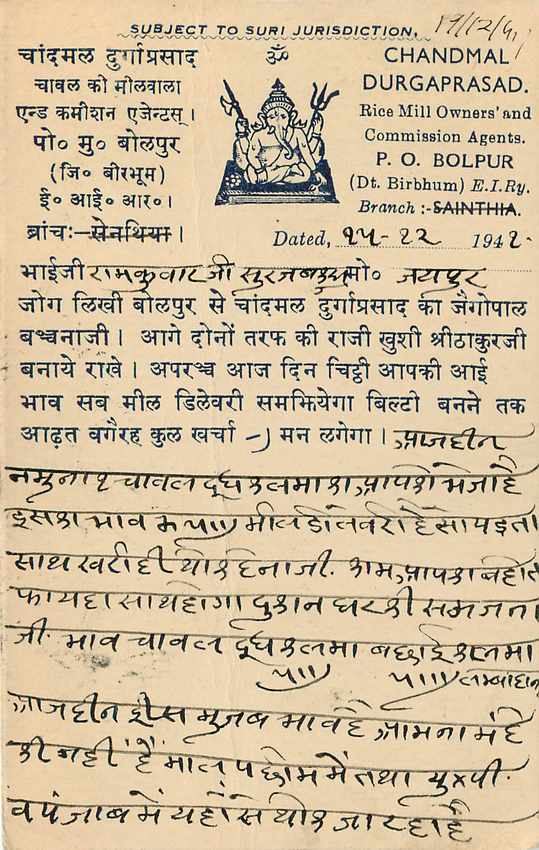 SUBJECT TO SURI JURISDICTION.
चांदमल दुर्गाप्रसाद
चावल की मीलवाला
एन्ड कमीशन एजेन्टस् ।
पो० मु० बोलपुर
(जि० बीरभूम)
ई० आई० आर० ।
ब्रांच:-सेनथिया ।
ॐ
CHANDMAL
DURGAPRASAD.
Rice Mill Owners' and
Commission Agents.
P. O. BOLPUR
(Dt. Birbhum) E.I.Ry.
Branch :-SAINTHIA.
Dated, १५-१२ 194१.
भाईजी रामकुवार जी सुरजबक्ष मो० जयपुर
जोग लिखी बोलपुर से चांदमल दुर्गाप्रसाद का जैगोपाल
बञ्चनाजी । आगे दोनों तरफ की राजी खुशी श्रीठाकुरजी
बनाये राखे । अपरञ्च आज दिन चिट्ठी आपकी आई
भाव सब मील डिलेवरी समझियेगा बिल्टी बनने तक
आढ़त वगैरह कुल खर्चा -) मन लगेगा । आजदीन
नमुना १ चावल दूधकलमा का आपको भेजा है
इसका भाव मील डीलेवरी है सो पड़ता
साथ खरीदी थोक देना जी. काम आपका बहोत
फायदा साथ होगा दुकान घर की समजना
जी. भाव चावल दूधकलमा कलमा
आजदीन इस मुजब भाव है
की नहीं है माल पछीम में तथा यु×पी.
व पंजाब में यहाँ से थोक जा रहा है